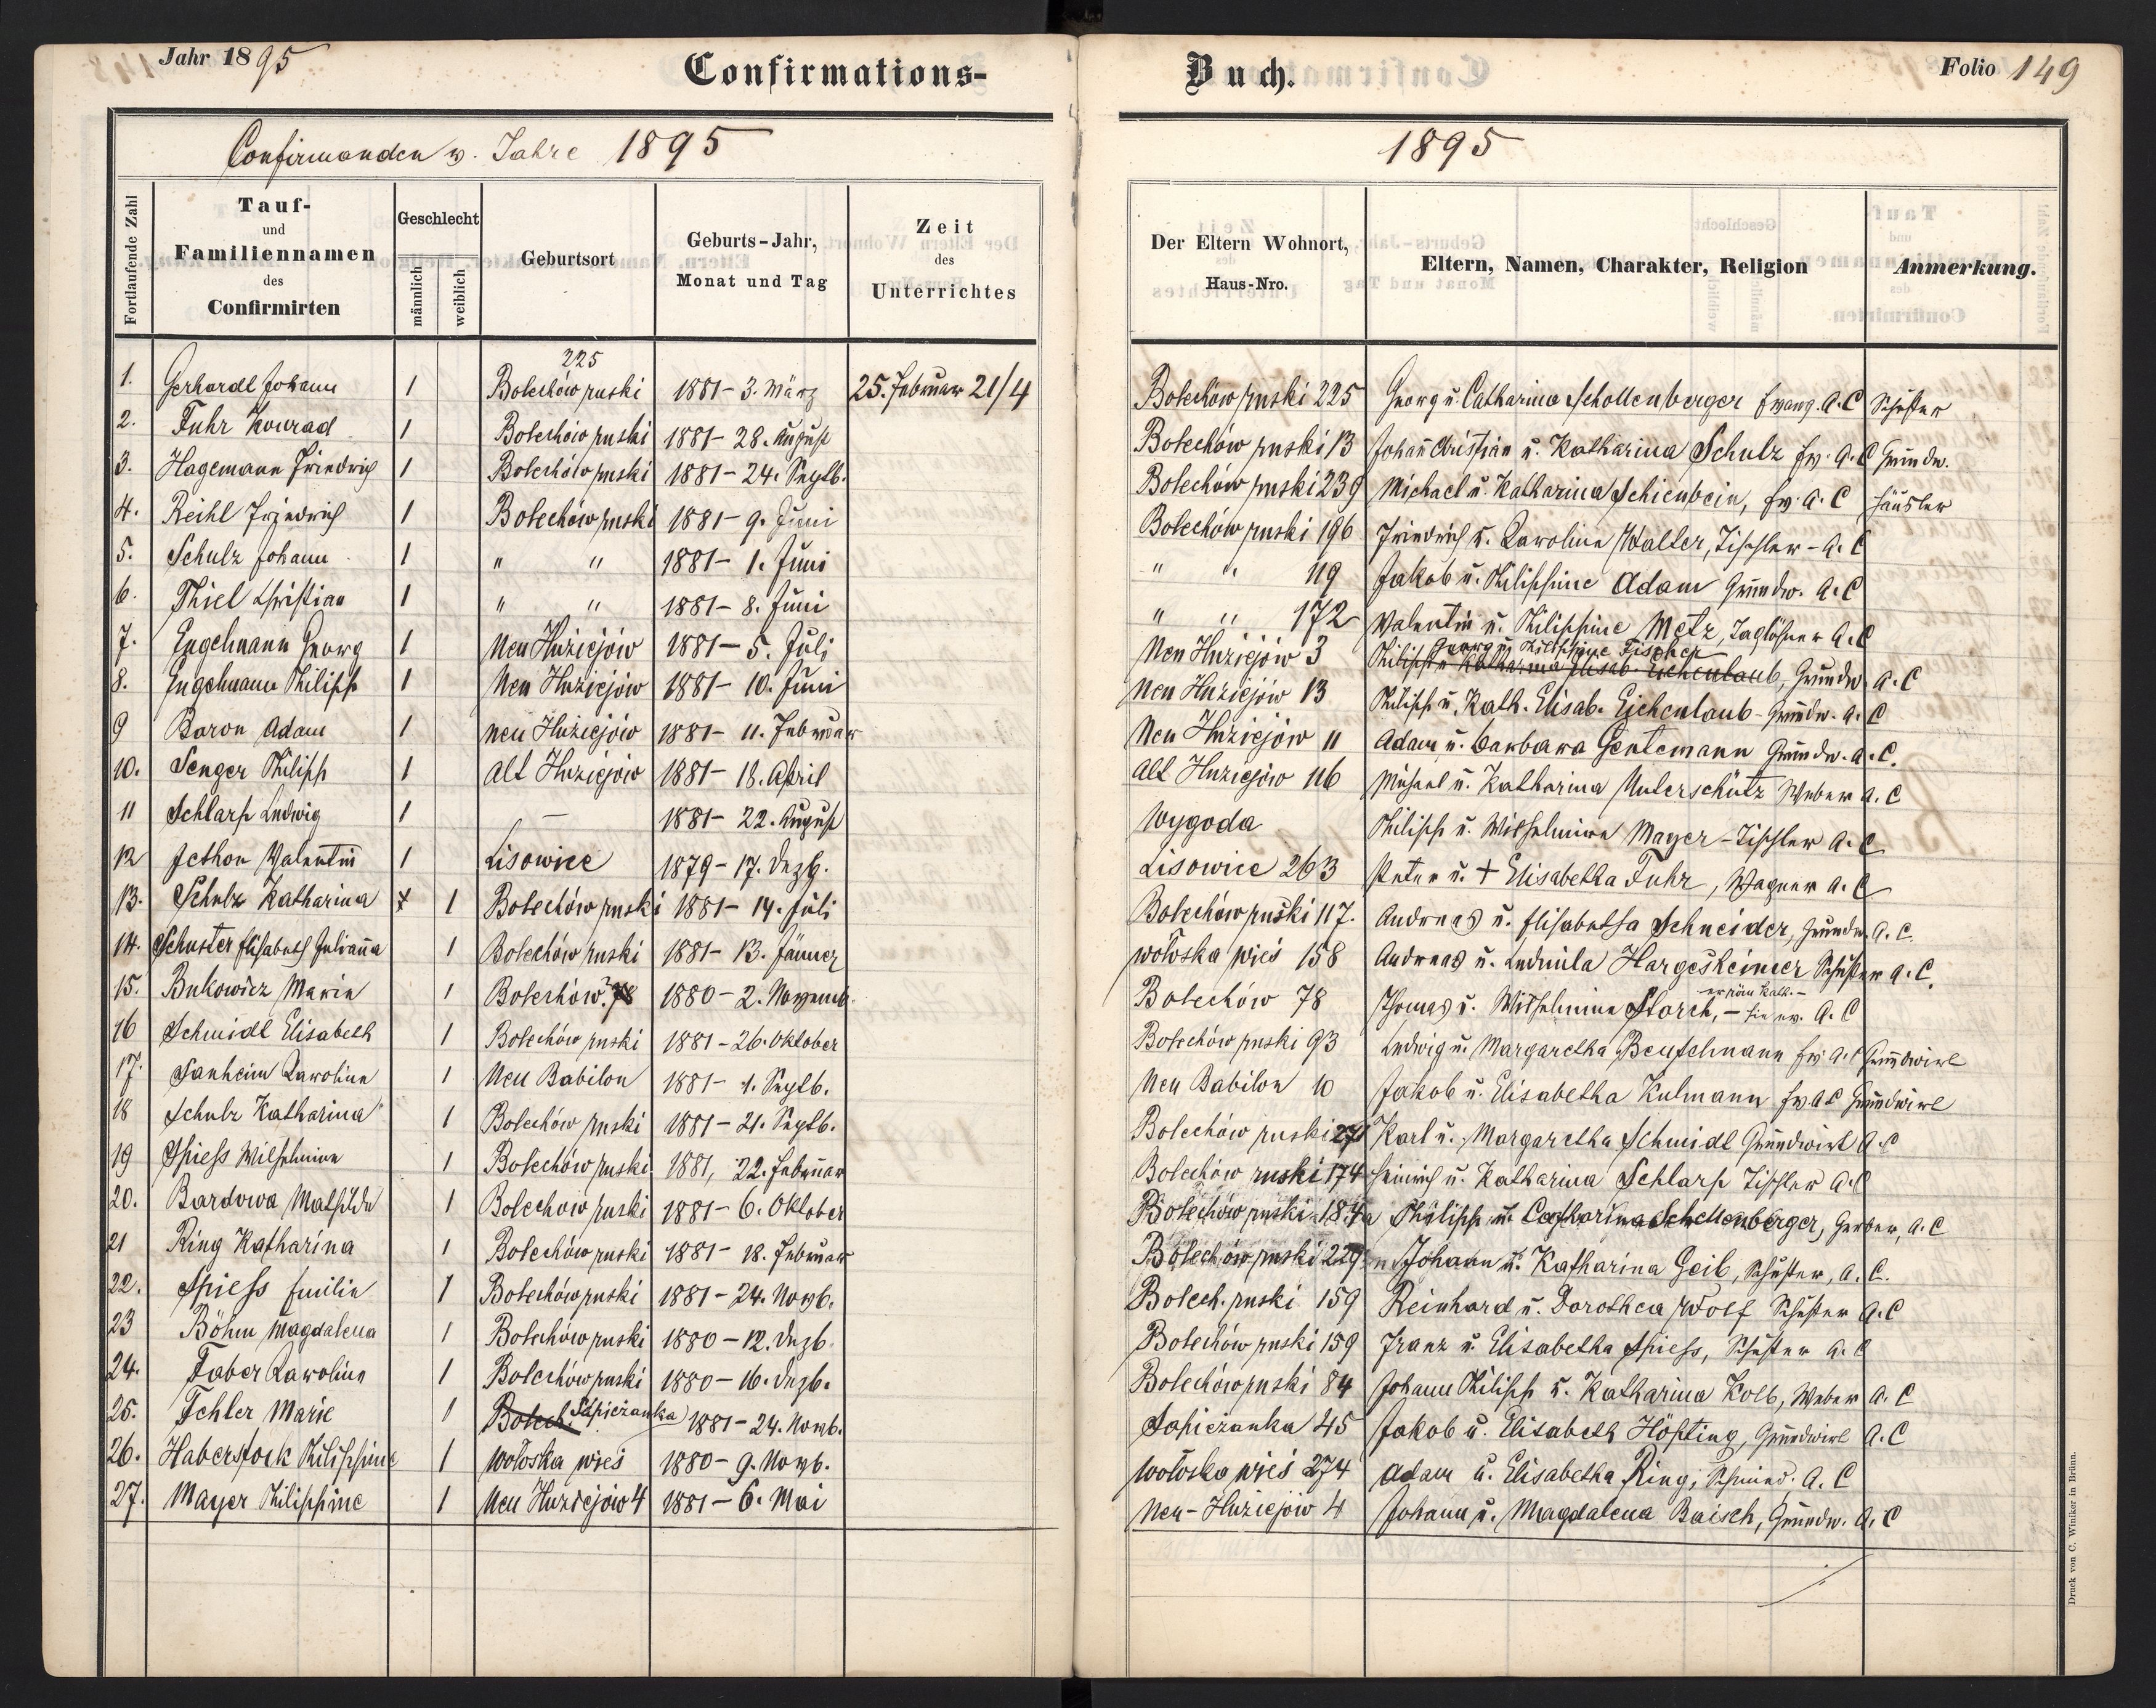 Jahr 1895
Confirmations-
Confirmanden v. Jahre 1895
Fortlaufende Zahl
Tauf- und Familiennamen des Confirmirten
Geschlecht
männlich
weiblich
Geburtsort
Geburts-Jahr, Monat und Tag
Zeit des Unterrichtes
225
1. Gerhardt Johann 1 Bolechów ruski 1881 - 3. März 25. Februar 21/4
2. Fuhr Konrad 1 Bolechów ruski 1881 - 28. August
3. Hagemann Friedrich 1 Bolechów ruski 1881 - 24. Septb.
4. Reihl Friedrich 1 Bolechów ruski 1881 - 9. Juni
5. Schulz Johann 1 " " 1881 - 1. Juni
6. Thiel Christian 1 " " 1881 - 8. Juni
7. Engelmann Georg 1 Neu Huziejów 1881 - 5. Juli
8. Engelmann Philipp 1 Neu Huziejów 1881 - 10. Juni
9 Baron Adam 1 Neu Huziejów 1881 - 11. Februar
10. Senger Philipp 1 Alt Huziejów 1881 - 18. April
11 Schlarp Ludwig 1 — 1881 - 22. August
12 Jethon Valentin 1 Lisowice 1879 - 17. Dezb.
13. Schulz Katharina 1 Bolechów ruski 1881 - 14. Juli
14. Schuster Elisabeth Julianna 1 Bolechów ruski 1881 - 13. Jänner
15. Bukowicz Marie 1 Bolechów 78 1880 - 2. Novemb.
16 Schmidt Elisabeth 1 Bolechów ruski 1881 - 26. Oktober
17. Sanheim Karoline 1 Neu Babilon 1881 - 1. Septb.
18 Schulz Katharina 1 Bolechów ruski 1881 - 21. Septb.
19 Spiess Wilhelmine 1 Bolechów ruski 1881, 22. Februar
20. Bardowa Mathilde 1 Bolechow ruski 1881 - 6. Oktober
21 Ring Katharina 1 Bolechów ruski 1881 - 18. Februar
22. Spiess Emilie 1 Bolechów ruski 1881 - 24. Novb.
23 Böhm Magdalena 1 Bolechów ruski 1880 - 12. Dezb.
24. Faber Karoline 1 Bolechów ruski 1880 - 16. Dezb.
25. Fehler Marie 1 Bolech. Sapieżanka 1881 - 24. Novb.
26. Haberstock Philippine 1 Wołoska wieś 1880 - 9. Novb.
27. Mayer Philippine 1 Neu Huziejów 4 1881 - 6. Mai
Buch.
Folio 149
1895
Der Eltern Wohnort, Haus-Nro.
Eltern, Namen, Charakter, Religion
Anmerkung.
Bolechów ruski 225 Georg u. Catharina Schollenberger Evang. A. C Schuster
Bolechów ruski 13 Johann Christian u. Katharina Schulz Ev. A. C Grundw.
Bolechów ruski 239 Michael u. Katharina Schienbein, Ev. A. C Häusler
Bolechów ruski 196 Friedrich u. Karoline Walter, Tischler - A. C
" " 119 Jakob u. Philippine Adam Grundw. A. C
" " 172 Valentin u. Philippine Metz, Taglöhner A. C
Georg u. Philippine Fischer
Neu Huziejów 3 Philipp u. Katharina Elisab. Eichenlaub, Grundw. A. C
Neu Huziejów 13 Philipp u. Kath. Elisab. Eichenlaub - Grundw. A. C
Neu Huziejów 11 Adam u. Barbara Gentemann Grundw. A. C.
Alt Huziejów 116 Michael u. Katharina Unterschütz Weber A. C
Wygoda Philipp u. Wilhelmine Mayer - Tischler A. C
Lisowice 263 Peter u. + Elisabetha Fuhr, Wagner A. C
Bolechów ruski 117. Andreas u. Elisabetha Schneider, Grundw. A. C.
Wołoska wieś 158 Andreas u. Ludmila Hargesheimer Schuster A. C.
er röm. Kath. -
Bolechów 78 Thomas u. Wilhelmine Storch, - sie ev. A. C
Bolechów ruski 93 Ludwig u. Margaretha Beutelmann Ev. A. C Grundwirt
Neu Babilon 10 Jakob u. Elisabetha Kulmann Ev. A C Grundwirt
Bolechów ruski 271 Karl u. Margaretha Schmidt Grundwirt A. C
Bolechów ruski 174 Heinrich u. Katharina Schlarp Tischler A. C
Bolechów ruski 184a Philipp u. Catharina Schellenberger, Gerber, A. C
Bolechów ruski 229 Johann u. Katharina Geib, Schuster, A. C.
Bolech. ruski 159 Reinhard u. Dorothea Wolf Schuster A. C
Bolechów ruski 159 Franz u. Elisabetha Spiess, Schuster A. C
Bolechów ruski 84 Johann Philipp u. Katharina Kolb, Weber A. C
Sapieżanka 45 Jakob u. Elisabeth Höpting, Grundwirt A. C
Wołoska wieś 274 Adam u. Elisabetha Ring, Schmied. A. C
Neu-Huziejów 4 Johann u. Magdalena Baisch, Grundw. A. C
Druck von C. Winiker in Brünn.